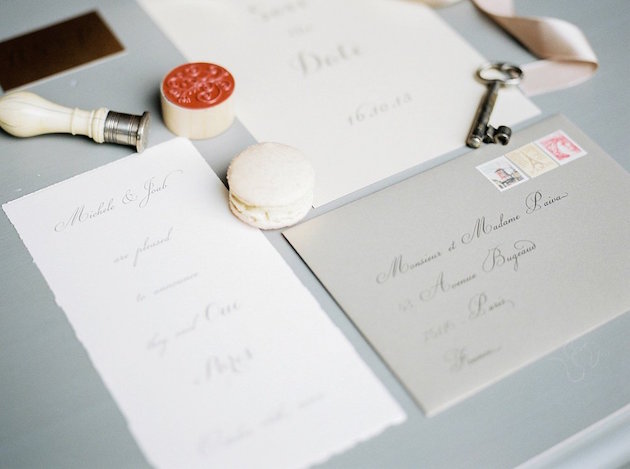 Save
the
Date
16.10.13
Michele & Joub
are pleased
to announce
they said Oui
Paris
Monsieur et Madame Paiva
Avenue Bugeaud
Paris
France